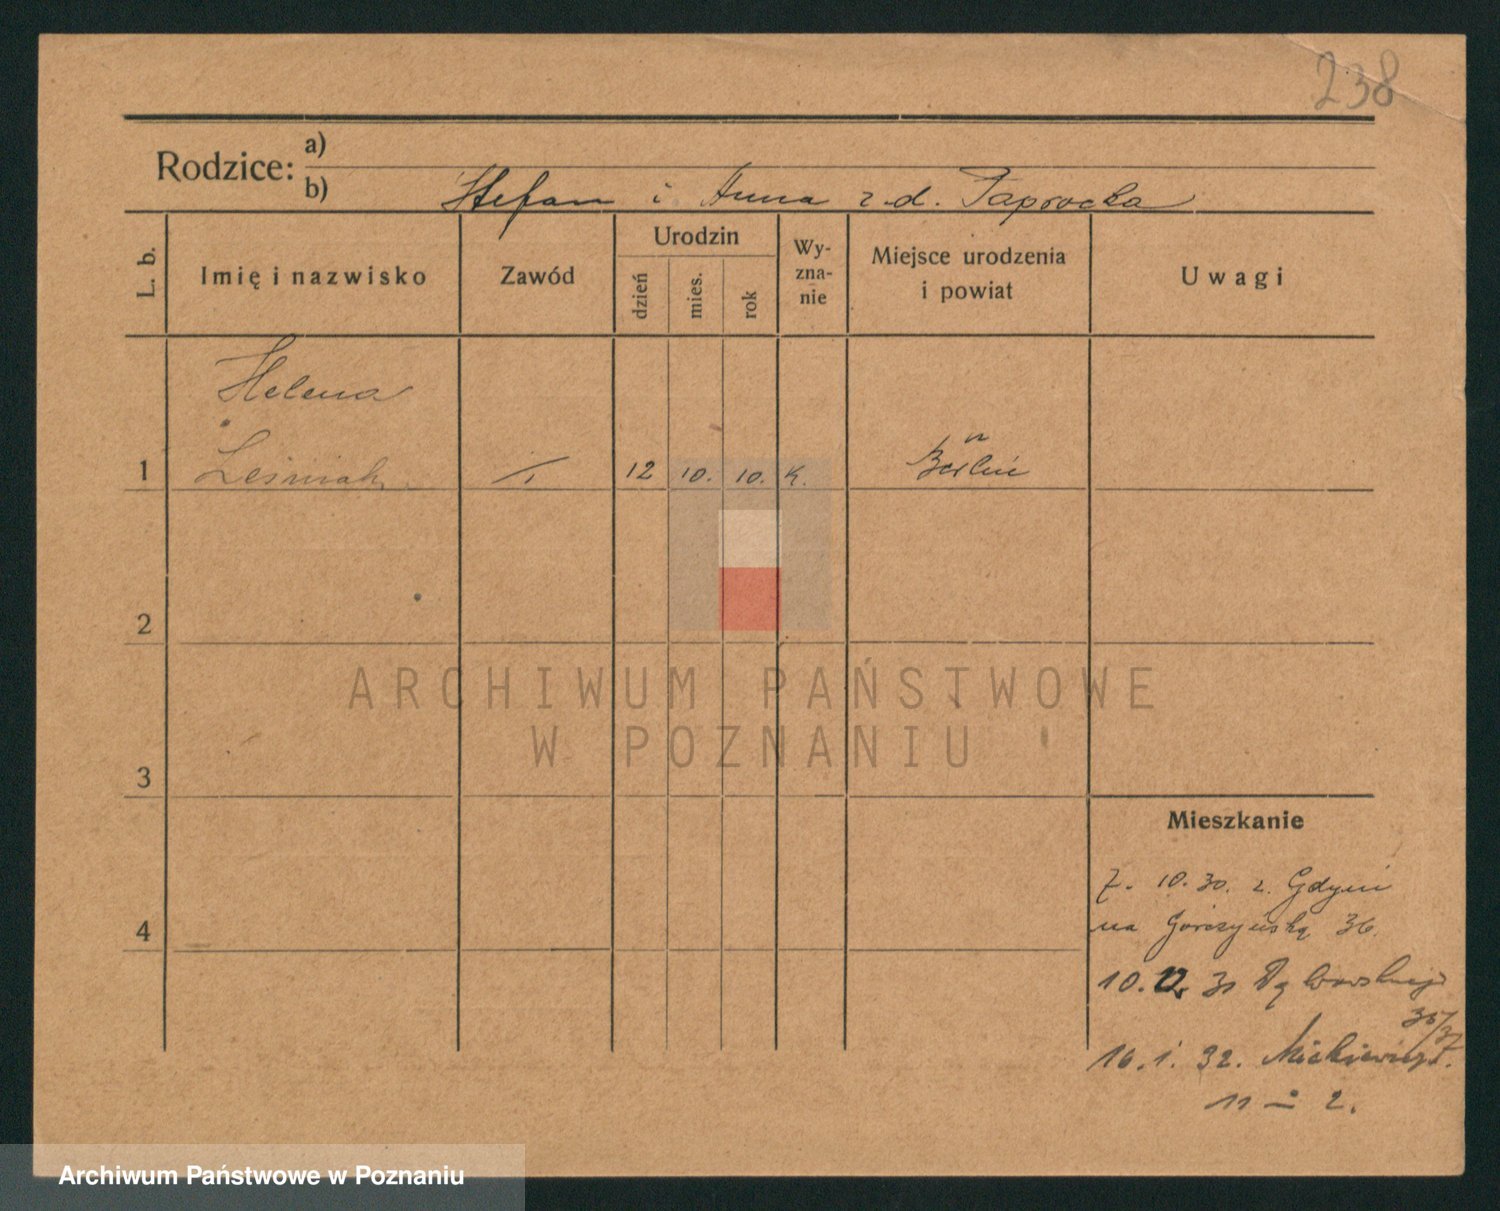 238
Rodzice:
a)
b) Stefan i Anna z d. Paprocka
L. b.
Imię i nazwisko
Zawód
Urodzin
dzień
mies.
rok
Wy-
zna-
nie
Miejsce urodzenia
i powiat
Uwagi
Helena
1 Leśniak 12 10. 10. K. Berlin
2
3
4
Mieszkanie
7. 10. 30. z Gdyni
na Górczyńską 36.
10. 31 Dąbrowskiego
35/37
16. 1. 32. Mickiewicza
11 – 2.
ARCHIWUM PAŃSTWOWE
W POZNANIU
Archiwum Państwowe w Poznaniu